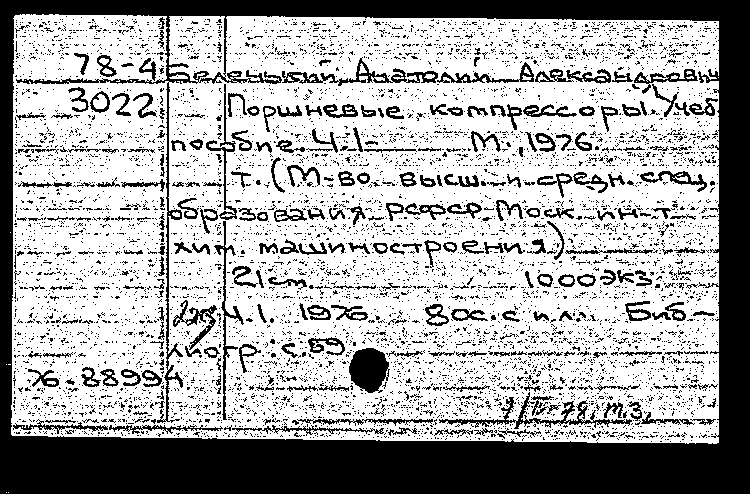 78-4 Беленький, Анатолий Александрович
3022 Поршневые компрессоры. Учеб.
пособие. Ч.1- М., 1976.
т. (М-во высш. и средн. спец.
образования РСФСР. Моск. ин-т
хим. машиностроения.)
21 см. 1000 экз.
Ч.1. 1976. 80с. с илл. Биб-
лиогр.: с.59.
76-88994
9/IV-78, т.З.